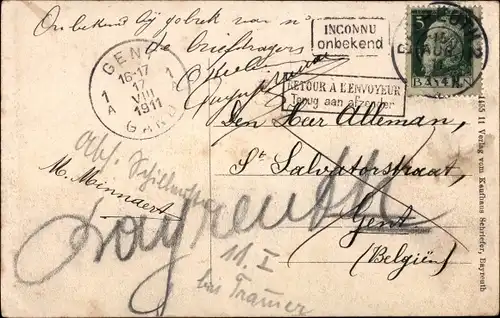 Onbekend bij gebrek van no
de briefdragers
GENT
16-17
17
VIII
1911
1 A
1
GAND
INCONNU
onbekend
RETOUR A L'ENVOYEUR
Terug aan afzender
5
BAYERN
Den Heer Alleman,
St Salvatorstraat,
Gent
(Belgiën)
Abs.
M. Minnaert
Bayreuth
11. I
bei Tramer
1455 11 Verlag vom Kaufhaus Schriefer, Bayreuth